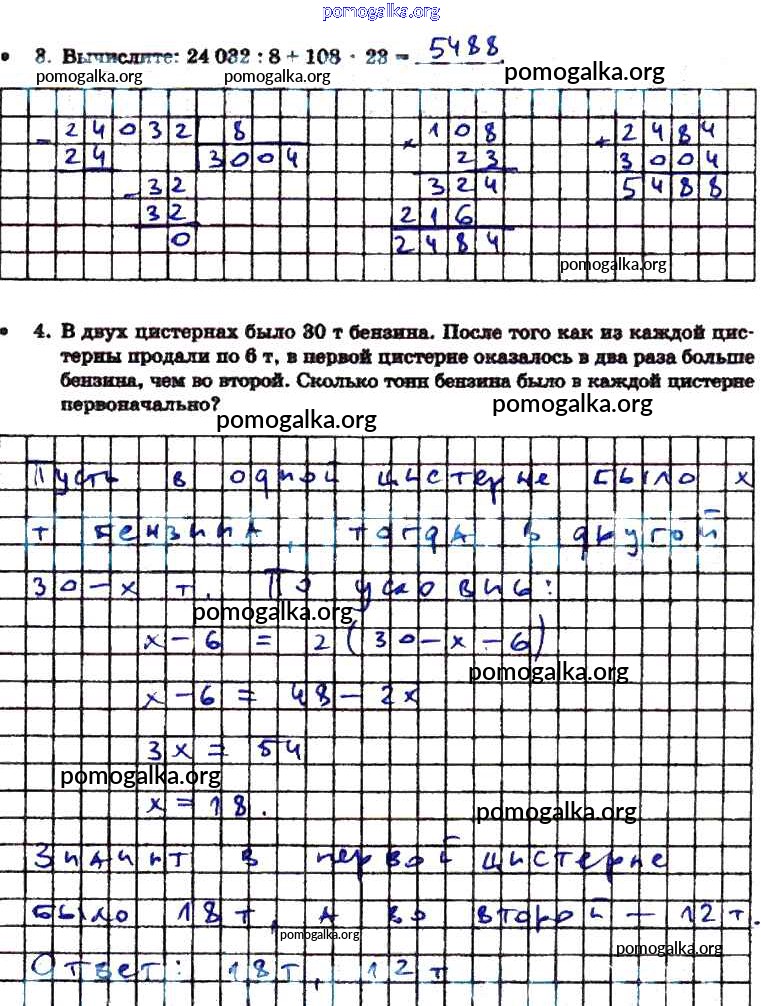 pomogalka.org
3. Вычислите: 24 032 : 8 + 108 · 23 = 5488.
pomogalka.org pomogalka.org pomogalka.org
24032 8 × 108 + 2484
- 24 3004 23 3004
- 32 324 5488
32 216
0 2484
pomogalka.org
4. В двух цистернах было 30 т бензина. После того как из каждой цис-
терны продали по 6 т, в первой цистерне оказалось в два раза больше
бензина, чем во второй. Сколько тонн бензина было в каждой цистерне
первоначально?
pomogalka.org pomogalka.org
Пусть в одной цистерне было x
т бензина, тогда в другой
30-x т. По условию:
pomogalka.org
x - 6 = 2(30-x-6)
pomogalka.org
x - 6 = 48 - 2x
3x = 54
pomogalka.org
x = 18.
pomogalka.org
Значит в первой цистерне
было 18 т, а во второй - 12 т.
pomogalka.org
pomogalka.org
Ответ: 18т, 12 т